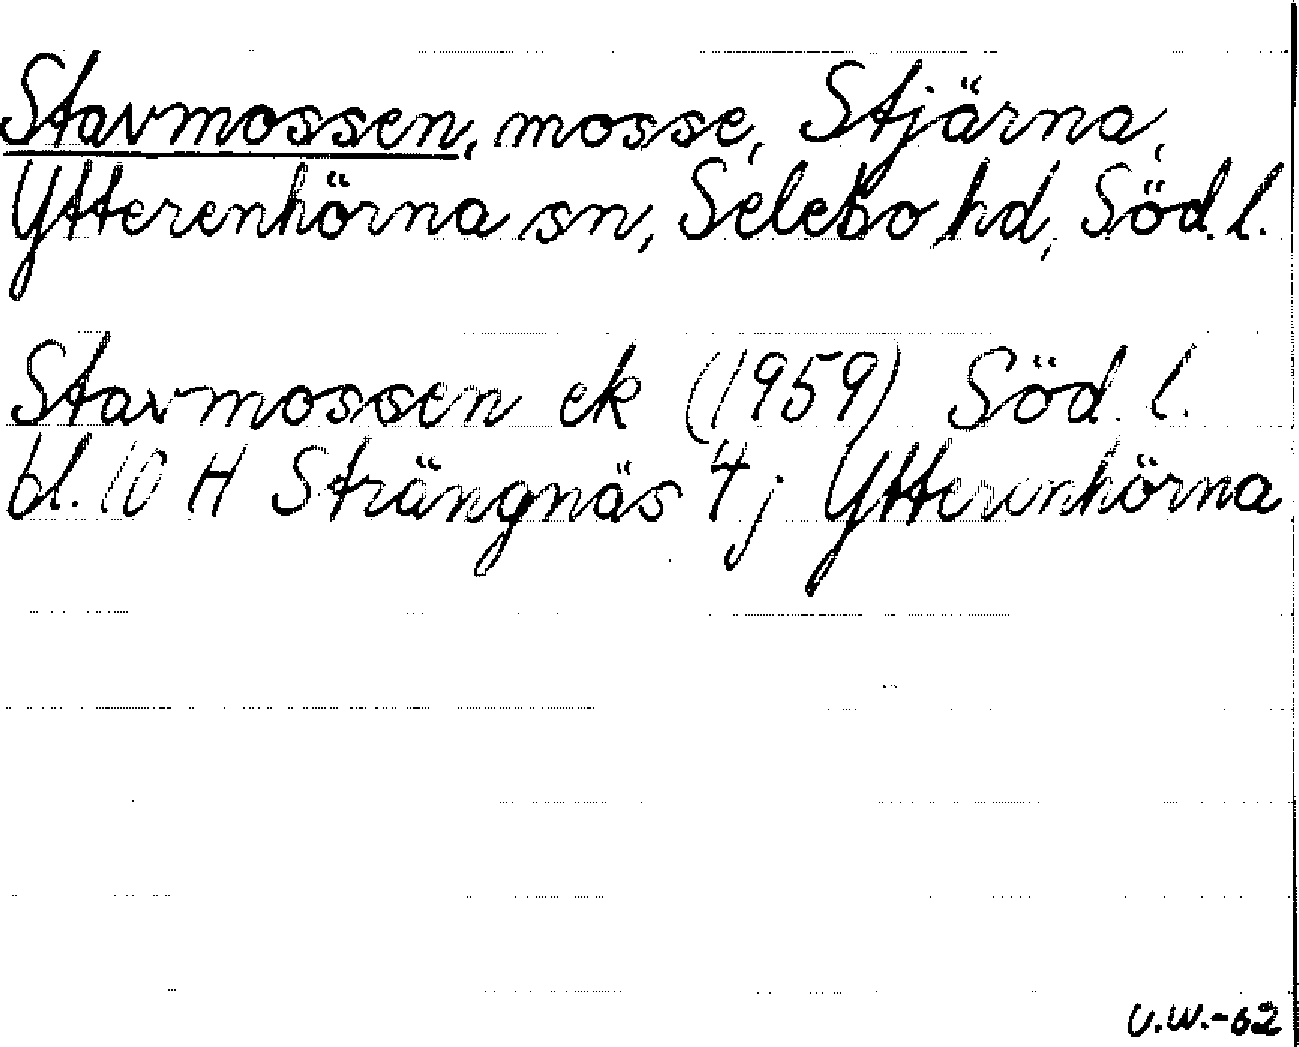 Stavmossen, mosse, Stjärna,
Ytterenhörna sn, Selebo hd, Söd. l.
Stavmossen ek (1959) Söd. l.
bl. 10 H Strängnäs 4 j Ytterenhörna
U.W.-62